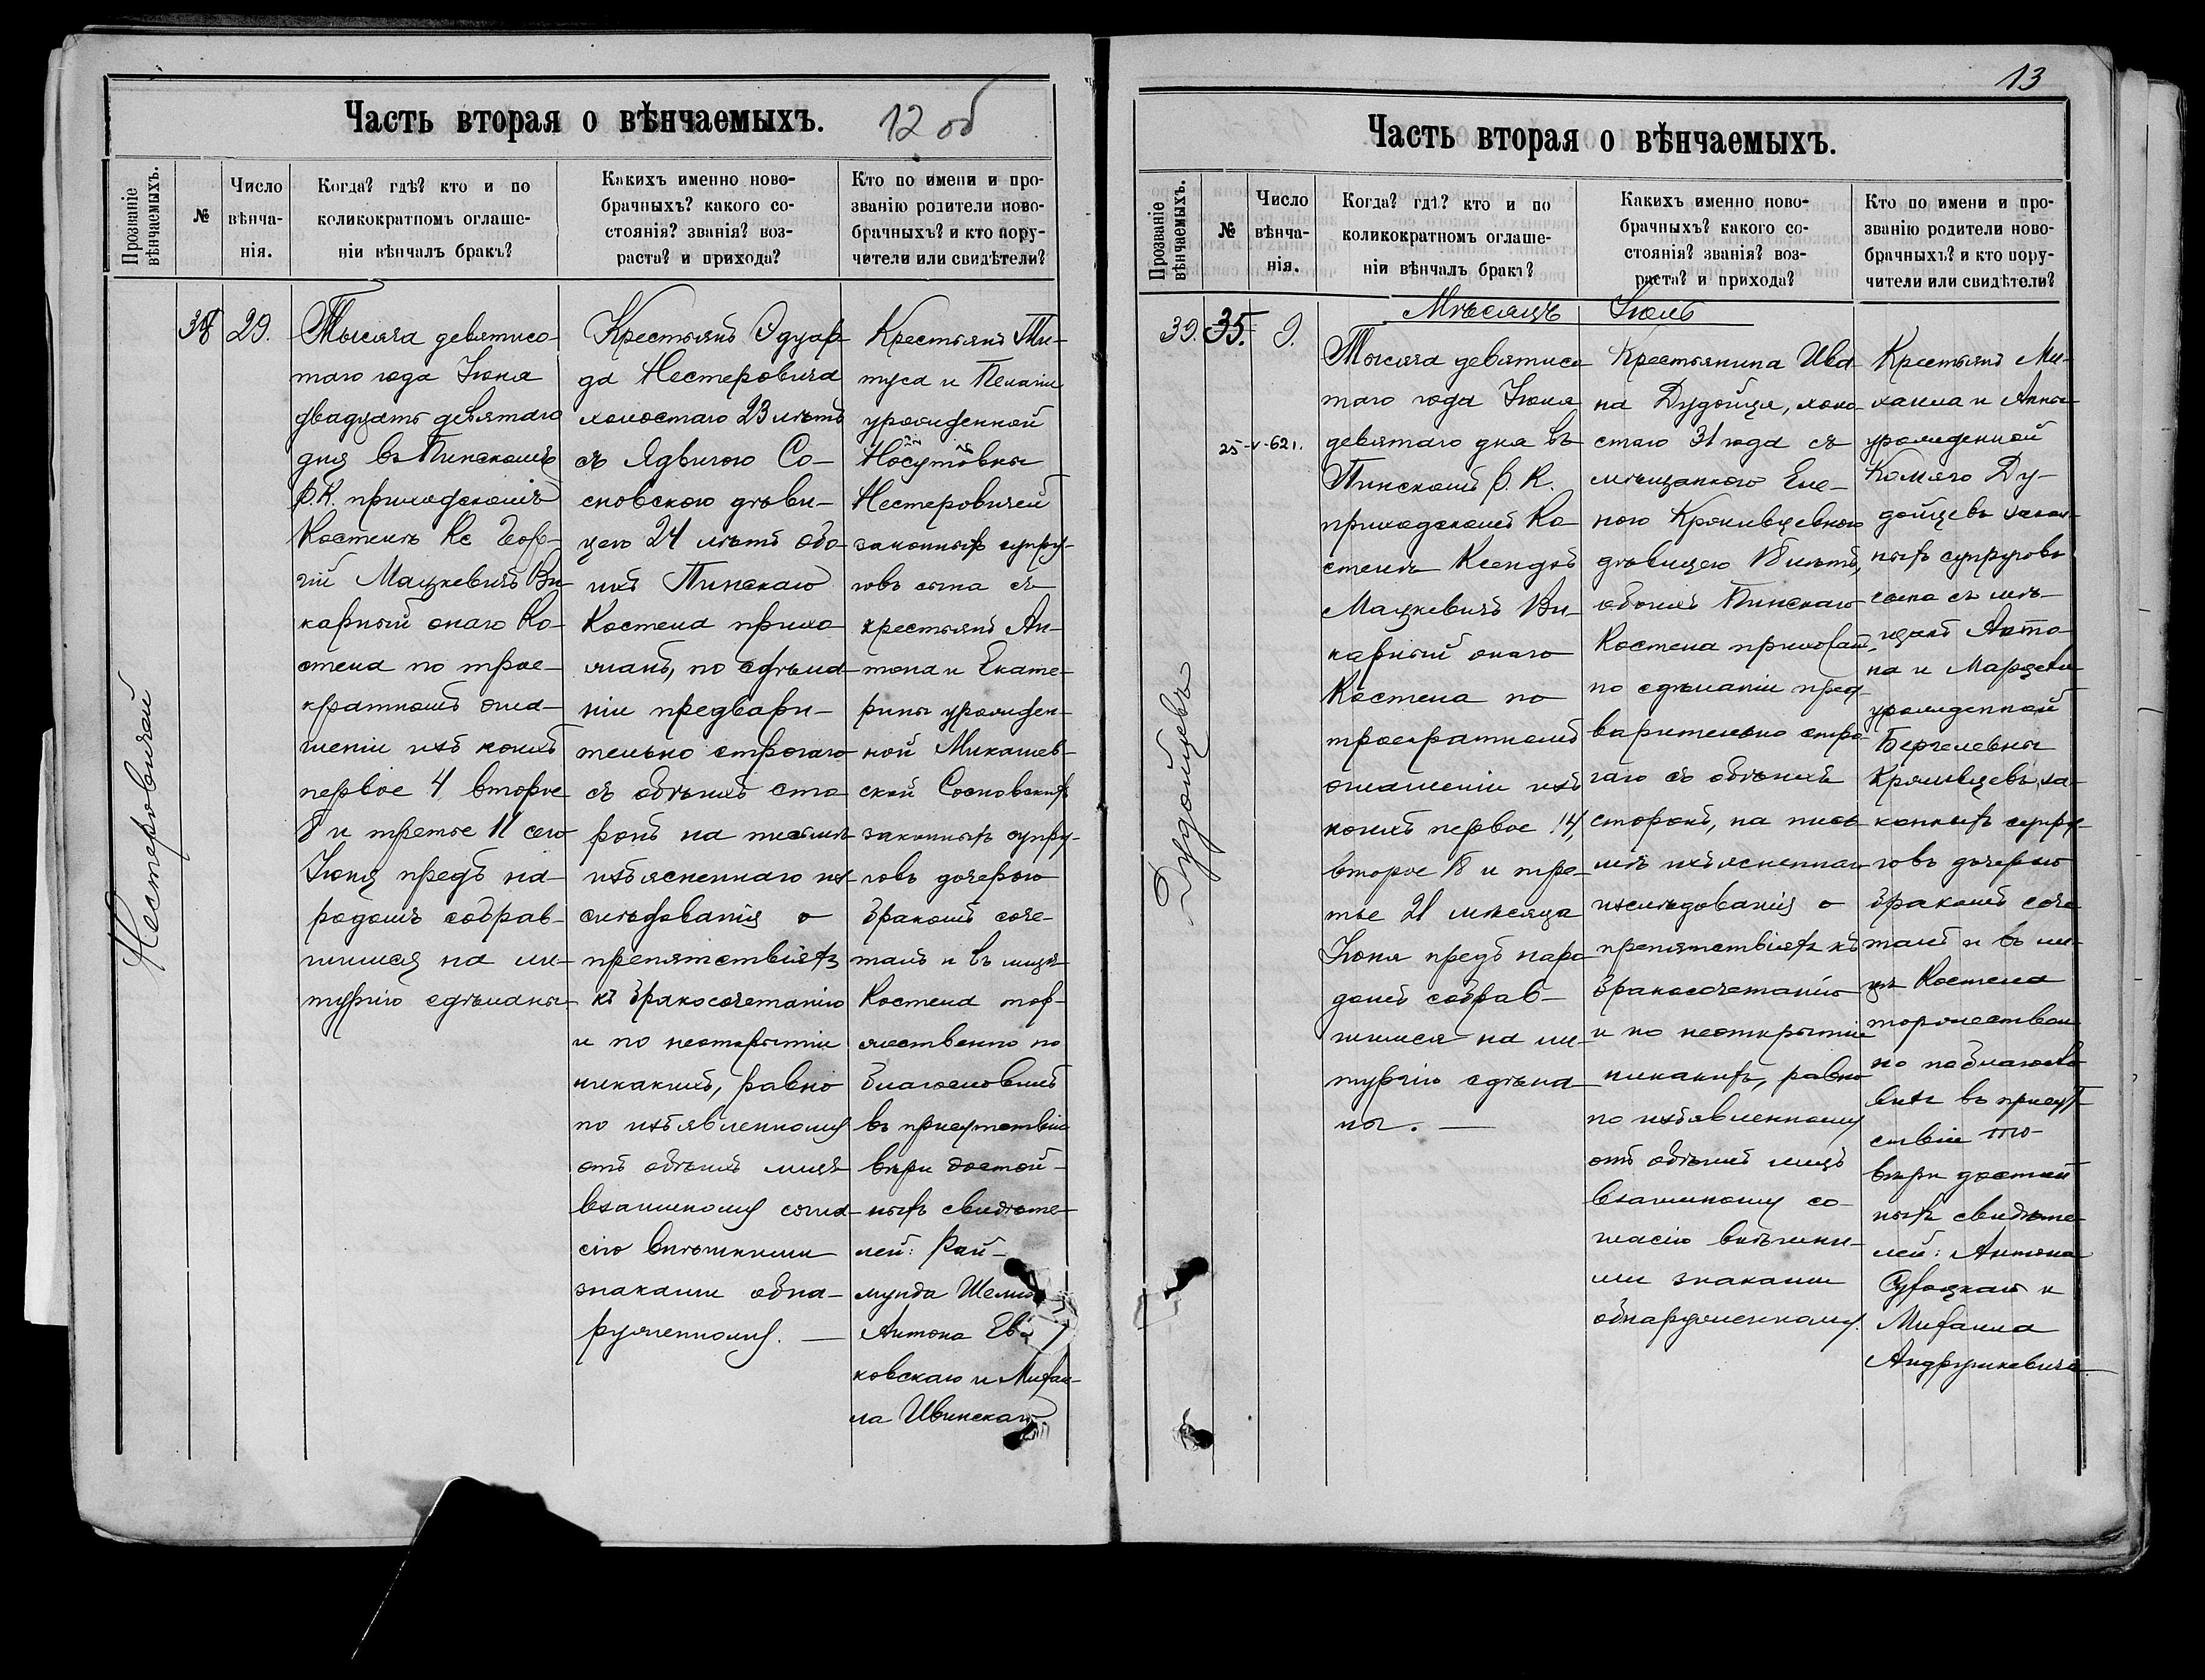 Часть вторая о вѣнчаемыхъ.
12 об
Прозваніе
вѣнчаемыхъ.
№
Число
вѣнча-
нія.
Когда? гдѣ? кто и по
коликократномъ оглаше-
ніи вѣнчалъ бракъ?
Какихъ именно ново-
брачныхъ? какого со-
стоянія? званія? воз-
раста? и прихода?
Кто по имени и про-
званію родители ново-
брачныхъ? и кто пору-
чители или свидѣтели?
Нестеровичей
38
29.
Тысяча девятисо-
таго года Іюня
двадцать девятаго
дня въ Пинскомъ
Р.К. приходскомъ
Костелѣ Кс Геор-
гій Мацкевичъ Ви-
карный онаго Ко-
стела по трое-
кратномъ огла-
шеніи изъ коихъ
первое 4 второе
8 и третье 11 сего
Іюня предъ на-
родомъ собрав-
шимся на ли-
тургію сдѣланы
Крестьянъ Эдуар-
да Нестеровича
холостаго 23 лѣтъ
съ Ядвигою Со-
сновскою дѣви-
цею 24 лѣтъ обо-
ихъ Пинскаго
Костела прихо-
жанъ, по сдѣла-
ніи предвари-
тельно строгаго
съ обѣихъ сто
ронъ на письмѣ
изъясненнаго из-
слѣдованія о
препятствіяхъ
къ бракосочетанію
и по неоткрытіи
никакихъ, равно
по изъявленному
отъ обѣихъ лицъ
взаимному согла-
сію внѣшними
знаками обна-
руженному. —
Крестьянъ Ти-
туса и Пелагіи
урожденной
Нестеровичей
законныхъ супру-
говъ сына съ
крестьянъ Ан-
тона и Екате-
рины урожден-
ной Микашев-
ской Сосновскихъ
законныхъ супру-
говъ дочерью
бракомъ соче-
талъ и въ лицѣ
Костела тор-
жественно по
благословилъ
въ присутствіи
вѣри достой-
ныхъ свидѣте-
лей: Рай-
мунда
Антона
ковскаго и Михаи-
ла Ивинскаго
13
Часть вторая о вѣнчаемыхъ.
Прозваніе
вѣнчаемыхъ.
№
Число
вѣнча-
нія.
Когда? гдѣ? кто и по
коликократномъ оглаше-
ніи вѣнчалъ бракъ?
Какихъ именно ново-
брачныхъ? какого со-
стоянія? званія? воз-
раста? и прихода?
Кто по имени и про-
званію родители ново-
брачныхъ? и кто пору-
чители или свидѣтели?
Дудойцевъ
39.
35.
9.
25-V-621.
Мѣсяцъ Іюль
Тысяча девятисо
таго года Іюля
девятаго дня въ
Пинскомъ Р. К.
приходскомъ Ко
стелѣ Ксендзъ
Мацкевичъ Ви-
карный онаго
Костела по
троекратномъ
оглашеніи изъ
коихъ первое 14,
второе 18 и тре-
тье 21 мѣсяца
Іюня предъ наро
домъ собрав-
шимся на ли-
тургію сдѣла
ны. —
Крестьянина Ива
на Дудойца, холо-
стаго 31 года съ
мѣщанкою Еле-
ною
дѣвицею 18 лѣтъ,
обоихъ Пинскаго
Костела прихожан.
по сдѣланіи пред-
варительно стро-
гаго съ обѣихъ
сторонъ, на пись
мѣ изъясненнаго
изслѣдованія о
препятствіяхъ къ
бракосочетанію
и по неоткрытіи
никакихъ, равно
по изъявленному
отъ обѣихъ лицъ
взаимному со-
гласію внѣшни-
ми знаками
обнаруженному.
Крестьянъ Ми-
хаила и Анны
урожденной
Комяго Ду-
дойцевъ закон-
ныхъ супруговъ
сына съ мѣ-
щанъ Анто-
на и
урожденной
за-
конныхъ супру-
говъ дочерью
бракомъ соче
талъ и въ ли-
цѣ Костела
торжествен
но поблагосло
вилъ въ присут-
ствіи
вѣри достой
ныхъ свидѣте-
лей: Антона
и
Михаила
Андрушкевича